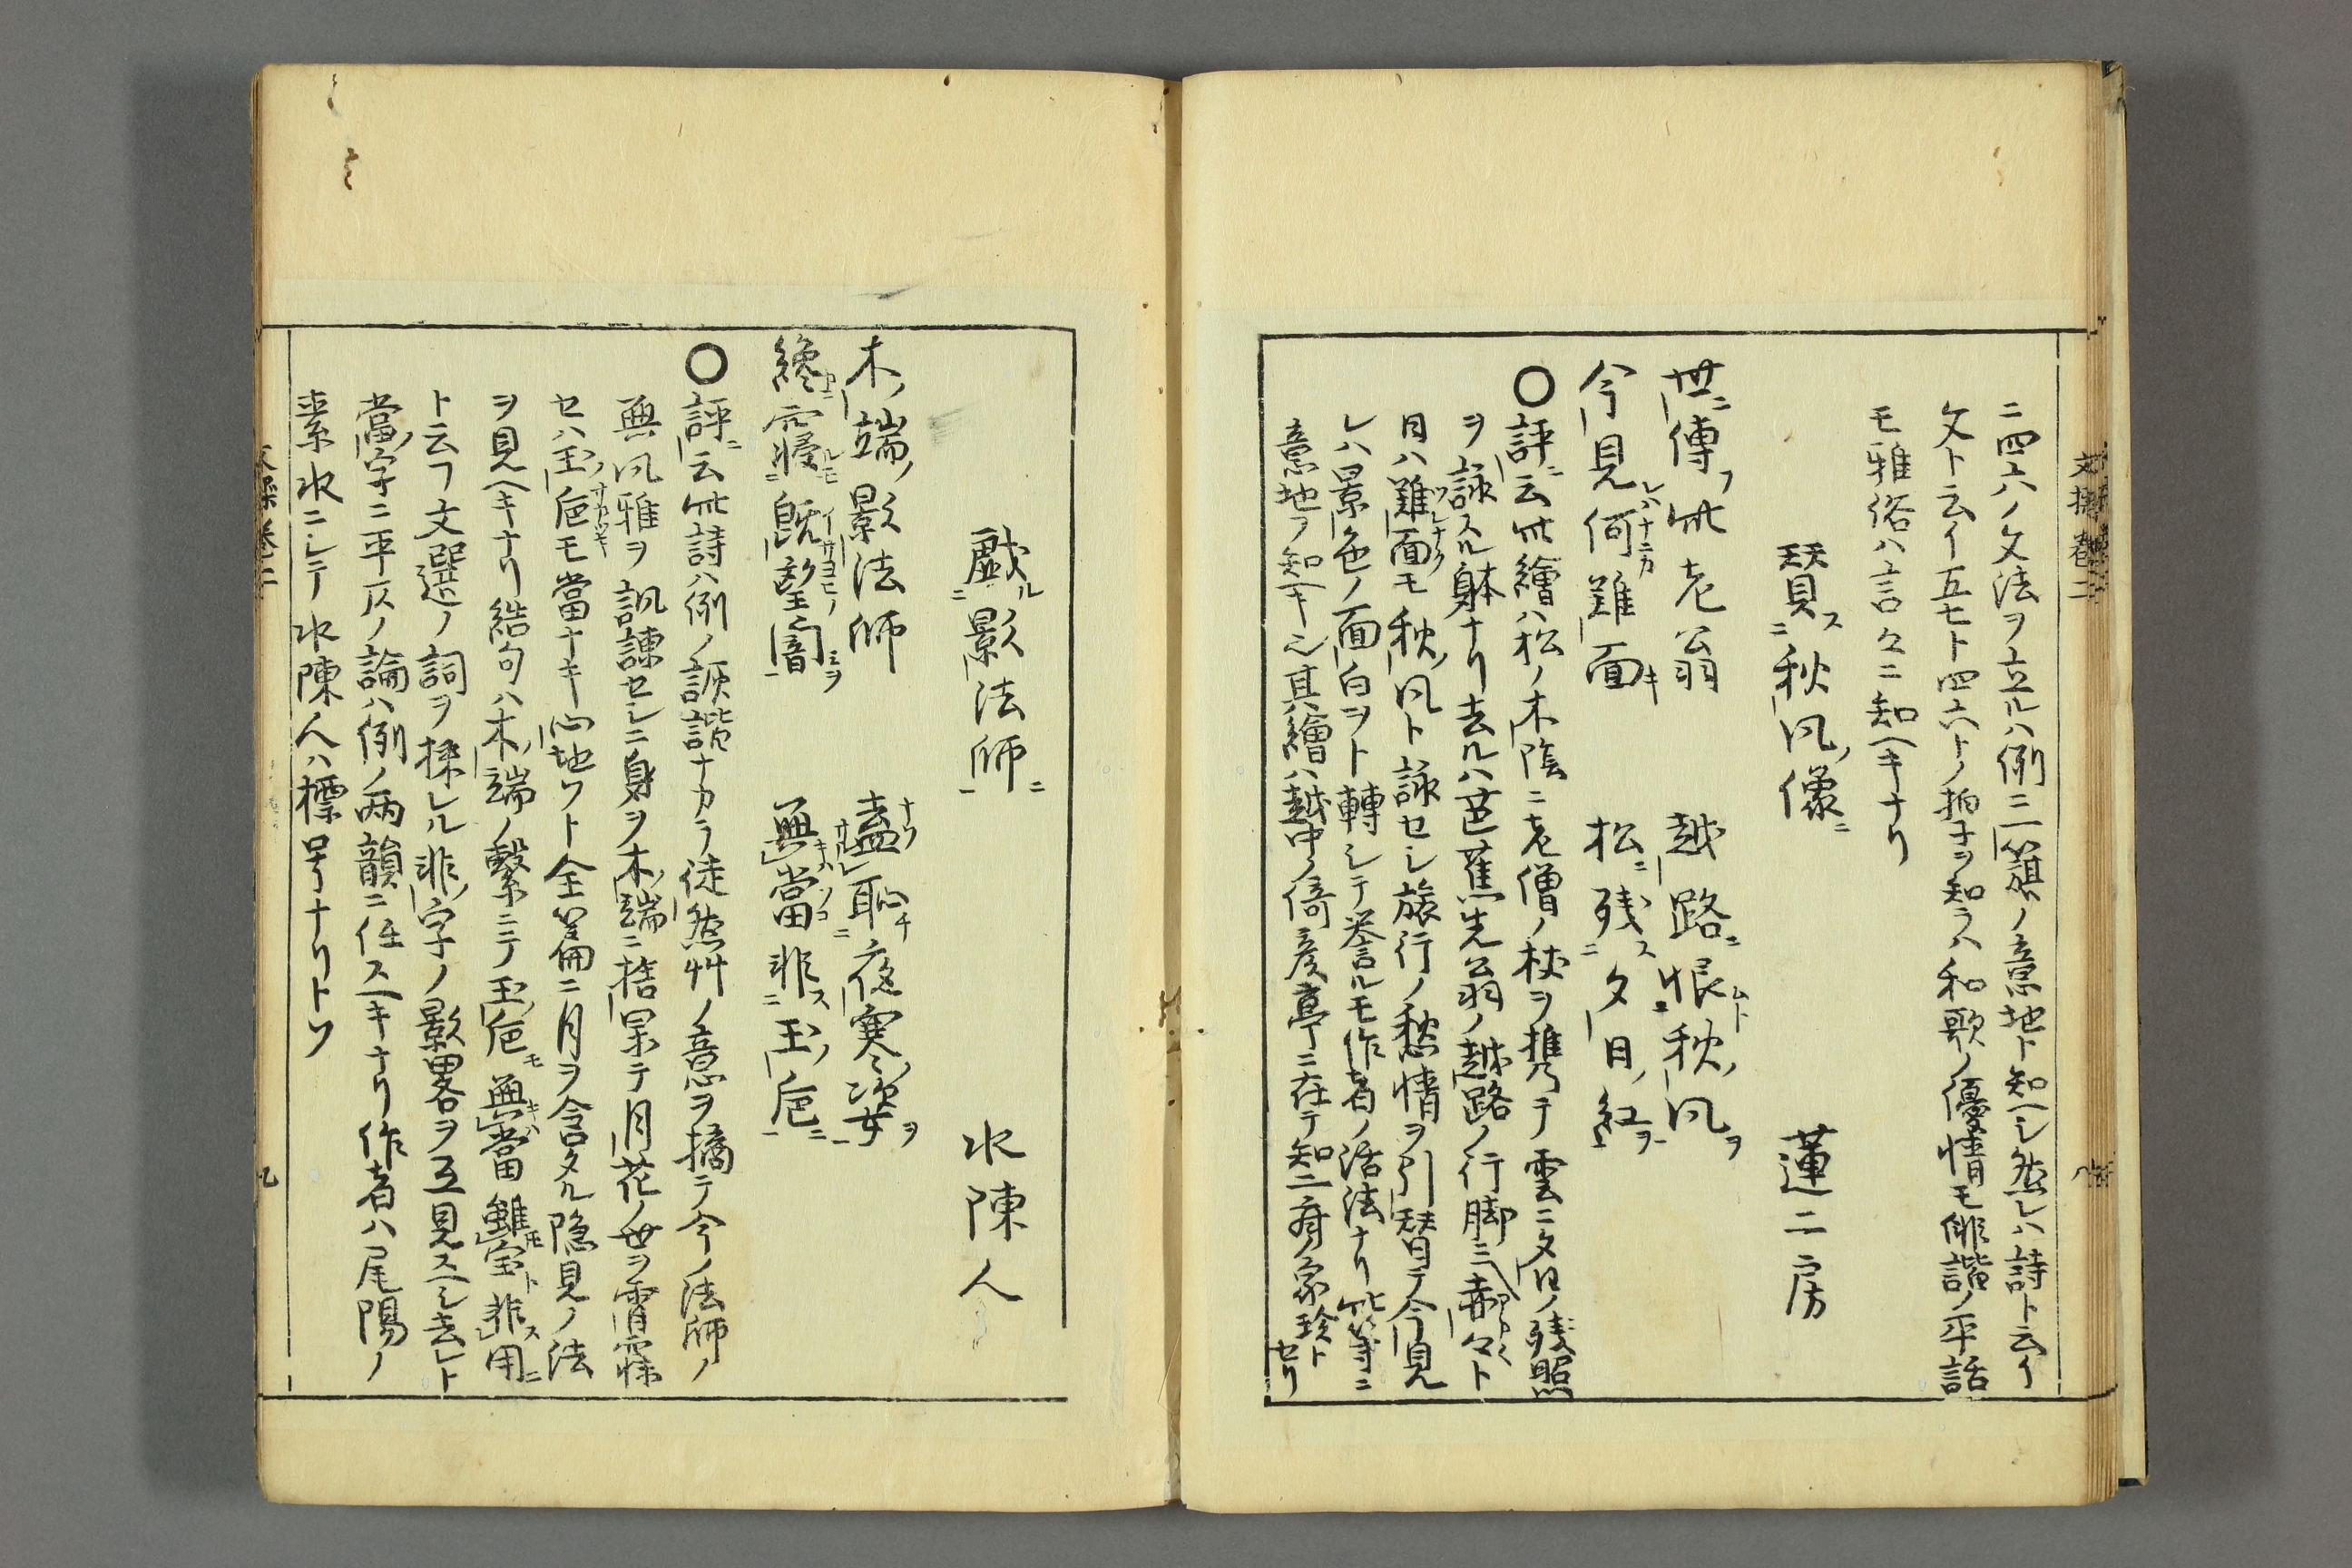 ニ四六ノ文法ヲ立ルハ例ニ一篇ノ意地ト知ヘシ然レハ詩ト云イ
文ト云イ五七ト四六トノ拍子ヲ知ラハ和歌ノ優情モ俳諧ノ平話
モ雅俗ハ言々ニ知ヘキナリ
賛ス秋風ノ像ニ 蓮二房
世ニ傳フ此老翁 越路ニ恨ムト秋ノ風ヲ
今見レハナニカ何難面キ 松ニ残ス夕日ノ紅ヲ
〇評ニ云此繪ハ松ノ木陰ニ老僧ノ杖ヲ携テ雲ニ夕日ノ残照
ヲ詠スル躰ナリ去ルハ芭蕉先翁ノ越路ノ行脚ニ赤々ト
日ハ難面モ秋ノ風ト詠セシ旅行ノ愁情ヲ引替テ今見
レハ景色ノ面白ヲト轉シテ誉ルモ作者ノ活法ナリ此等ニ
意地ヲ知ヘキ也其繪ハ越中ノ倚彦亭ニ在テ知二府ノ家珍トセリ
戯ルニ影法師ニ 水陳人
木ノ端ノ影法師 盍ナソレ恥チ夜寒ノ姿ヲ
纔ニ寢ルモ既望イサヨヒノ闇ミヲ 無當ソコ非スニ玉ノ巵ニ
〇評ニ云此詩ハ例ノ誹諧ナカラ徒然艸ノ意ヲ摘テ今ノ法師ノ
無風雅ヲ諷諫セシニ身ヲ木ノ端ニ捨果テ月花ノ世ヲ宵寐
セハ玉ノ巵モ當ナキ心地ソト全篇ニ月ヲ含タル隠見ノ法
ヲ見ヘキナリ結句ハ木ノ端ノ繋ニテ玉ノ巵モ無當雖モ宝ト非スレ用ニ
ト云フ文選ノ詞ヲ採レル非ノ字ノ影畧ヲ互見スヘシ去レト
當ノ字ニ平仄ノ論ハ例ノ両韻ニ任スヘキナリ作者ハ尾陽ノ
素水ニシテ水陳人ハ標号ナリトソ